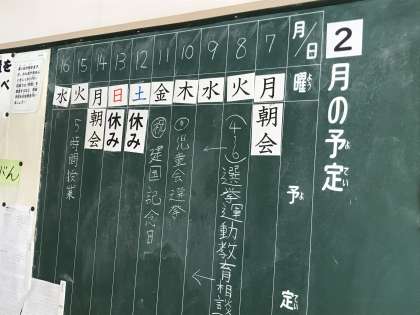 2月の予定
月/日 曜 予定
7 月 朝会
8 火 (4~6) 選挙運動教育相談
9 水
10 木 児童会選挙
11 金 ㊗ 建国記念日
12 土 休み
13 日 休み
14 月 朝会
15 火 5時間授業
16 水